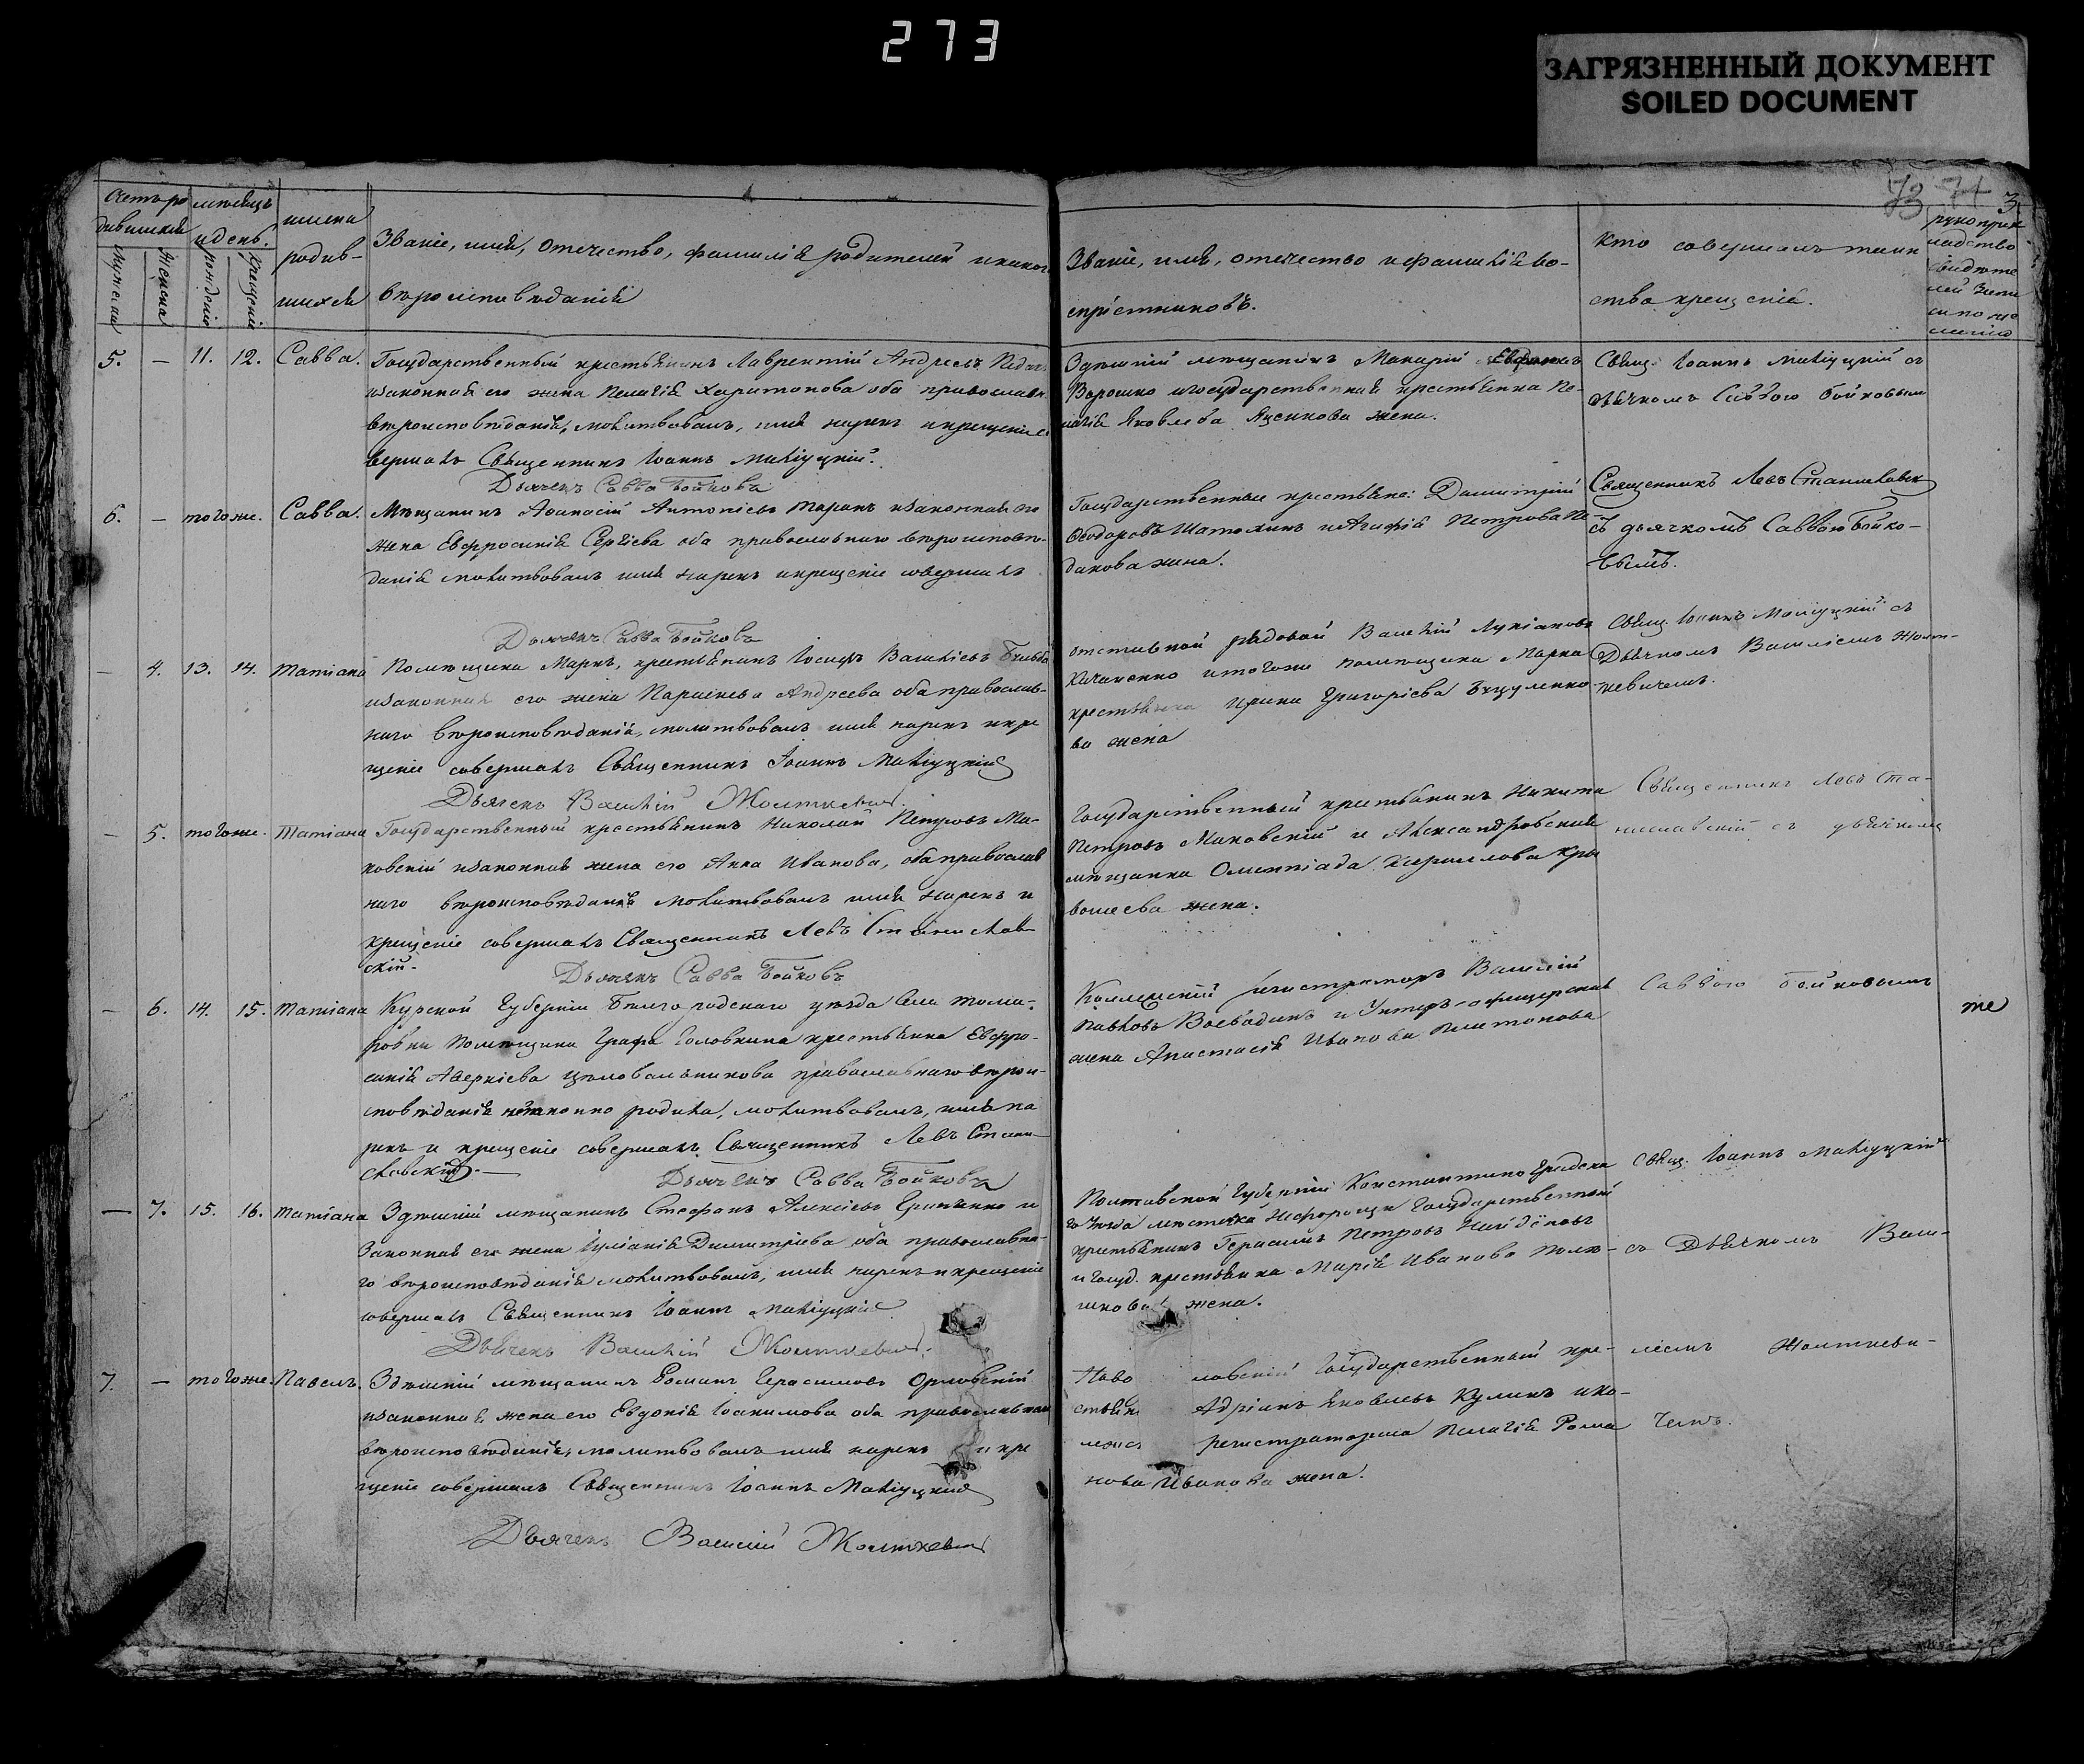 273
ЗАГРЯЗНЕННЫЙ ДОКУМЕНТ
SOILED DOCUMENT
73 71 3
Счетъ ро
дившихся
мѣсяцъ
и день.
имена
родив-
шихся
Мужеска
Женска
рожденія
крещенія
Званіе, имя, отечество, фамилія родителей и какого
вѣроисповѣданія
Званіе, имя, отечество и фамилія во-
спріемниковъ.
Кто совершалъ таин
ство крещенія.
рукоприк
ладство
свидѣте
лей запи
си по же
ланію
5. — 11. 12. Савва. Государственный крестьянинъ Лаврентій Андреевъ
и законная его жена Пелагія Харитонова оба православн.
вѣроисповѣданія, молитвовалъ, имя нарекъ и крещеніе со
вершалъ Священникъ Іоаннъ
Дьячекъ Савва Бойковъ
Здѣшній мѣщанинъ Макарій
Ворошко и государственная крестьянка Пе-
лагія Яковлева Яценкова жена.
Свящ. Іоаннъ съ
дьячкомъ Саввою Бойковым
6. — того же. Савва. Мѣщанинъ Аѳанасій Антоніевъ Таранъ и законная его
жена Евфросинія Сергіева оба православнаго вѣроисповѣ-
данія молитвовалъ имя нарекъ и крещеніе совершалъ
Дьячекъ Савва Бойковъ
Государственные крестьяне: Димитрій
Ѳеодоровъ Шатохинъ и Агафія Петрова
дакова жена.
Священникъ Левъ Станиславск
съ дьячкомъ Саввою Бойко-
вымъ.
— 4. 13. 14. Татіана Помѣщика Марка, крестьянинъ Іосифъ Василіевъ
и законная его жена Параскева Андреева оба православ-
наго вѣроисповѣданія, молитвовалъ имя нарекъ и кре
щеніе совершалъ Священникъ Іоаннъ
Дьячекъ Василій Жолткевич
отставной рядовой Василій Лукіановъ
и того же помѣщика Марка
крестьянка Ирина Григоріева
ва жена
Свящ. Іоаннъ съ
Дьячкомъ Василіемъ Жолт-
кевичемъ.
— 5. того же. Татіана Государственный крестьянинъ Николай Петровъ Ма-
ковскій и законная жена его Анна Иванова, оба православ
наго вѣроисповѣданія молитвовалъ имя нарекъ и
крещеніе совершалъ Священникъ Левъ Станислав
скій.
Дьячекъ Савва Бойковъ
Государственный крестьянинъ Никита
Петровъ Маковскій и Александровская
мѣщанка Олимпіада Кириллова Кры
вошеева жена.
Священникъ Левъ Ста-
ниславскій съ дьячкомъ
— 6. 14. 15. Татіана Курской Губерніи Бѣлгородскаго уѣзда Села Тома-
ровки помѣщика Графа Головкина крестьянка Евфро-
синія Аверкіева Цѣловальникова православнаго вѣрои-
сповѣданія незаконно родила, молитвовалъ, имя на
рекъ и крещеніе совершалъ Священникъ Левъ Стани-
славскій.
Дьячекъ Савва Бойковъ
Коллежскій регистраторъ Василій
Павловъ Воеводинъ и Унтеръ-офицерская
жена Анастасія Иванова Платонова
Саввою Бойковымъ
же
— 7. 15. 16. Татіана Здѣшній мѣщанинъ Стефанъ Алексіевъ и
законная его жена Іуліанія Димитріева оба православна-
го вѣроисповѣданія молитвовалъ, имя нарекъ и крещеніе
совершалъ Священникъ Іоаннъ
Дьячекъ Василій Жолткевич.
Полтавской Губерніи Константиноградска
го Уѣзда мѣстечка Нехворощи Государственный
крестьянинъ Герасимъ Петровъ Найдёновъ
и Госуд. крестьянка Марія Иванова
жена.
Свящ. Іоаннъ
съ Дьячкомъ Васи-
7. — того же. Павелъ. Здѣшній мѣщанинъ Романъ Герасимовъ Орловскій
и законная жена его Евдокія Іоакимова оба православнаго
вѣроисповѣданія, молитвовалъ имя нарекъ и кре
щеніе совершалъ Священникъ Іоаннъ
Дьячекъ Василій Жолткевич
Ново ловскій Государственный кре-
стьян Адріанъ Яковлевъ Кулинъ и ко-
лежс регистраторша Пелагія Рома
нова Иванова жена.
ліемъ Жолткеви-
чемъ.